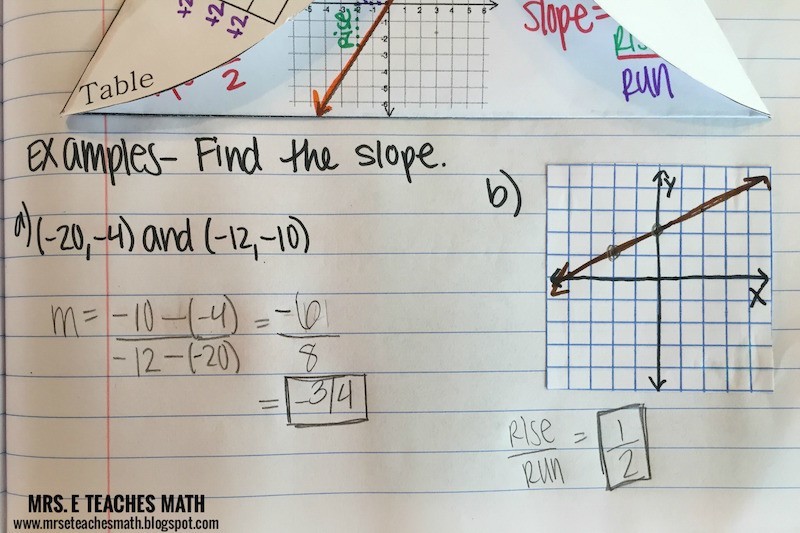 +2
+2
+2
Table
2
rise
slope=
RUN
Examples- Find the slope.
a) (-20,-4) and (-12,-10)
m = -10-(-4) = -6
-12-(-20) 8
= -3/4
b)
y
x
RISE = 1
RUN 2
MRS. E TEACHES MATH
www.mrseteachesmath.blogspot.com